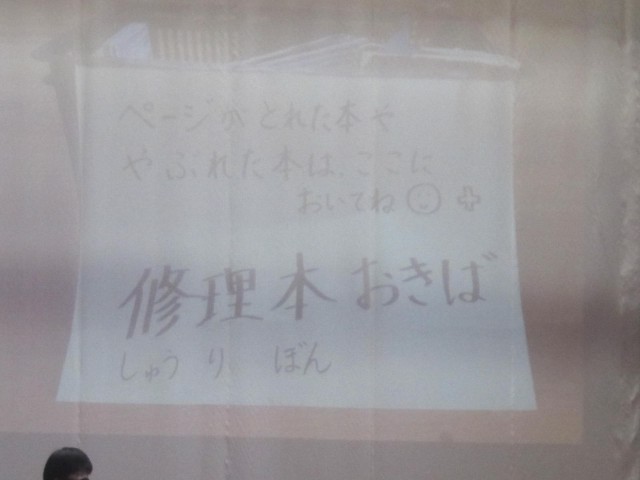 ページがとれた本や
やぶれた本は、ここに
おいてね
修理本おきば
しゅうり ぼん